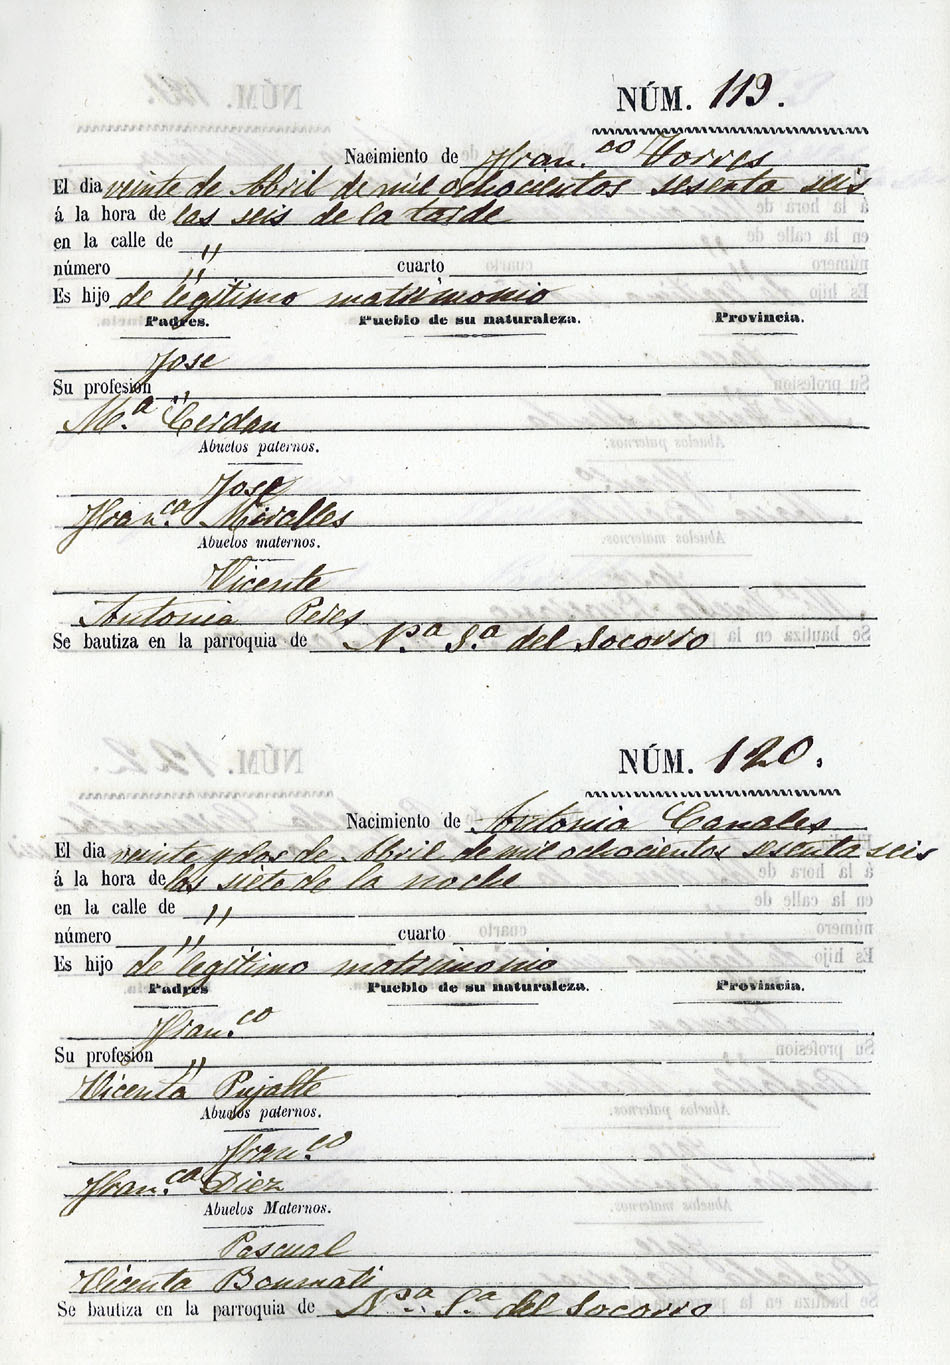 NÚM. 119.
Nacimiento de Fran.co Torres
El dia veinte de Abril de mil ochocientos sesenta seis
á la hora de las seis de la tarde
en la calle de "
número " cuarto
Es hijo de legitimo matrimonio
Padres. Pueblo de su naturaleza. Provincia.
Jose
Su profesion "
M.a Cerdan
Abuelos paternos.
Jose
Fran.ca Miralles
Abuelos maternos.
Vicente
Antonia Peres
Se bautiza en la parroquia de N.a S.a del Socorro
NÚM. 120.
Nacimiento de Antonia Canales
El dia veinte y dos de Abril de mil ochocientos sesenta seis
á la hora de las siete de la noche
en la calle de "
número " cuarto
Es hijo de legitimo matrimonio
Padres Pueblo de su naturaleza. Provincia.
Fran.co
Su profesion "
Vicenta Pujalte
Abuelos paternos.
Fran.co
Fran.ca Diez
Abuelos Maternos.
Pascual
Vicenta Bonmati
Se bautiza en la parroquia de N.a S.a del Socorro